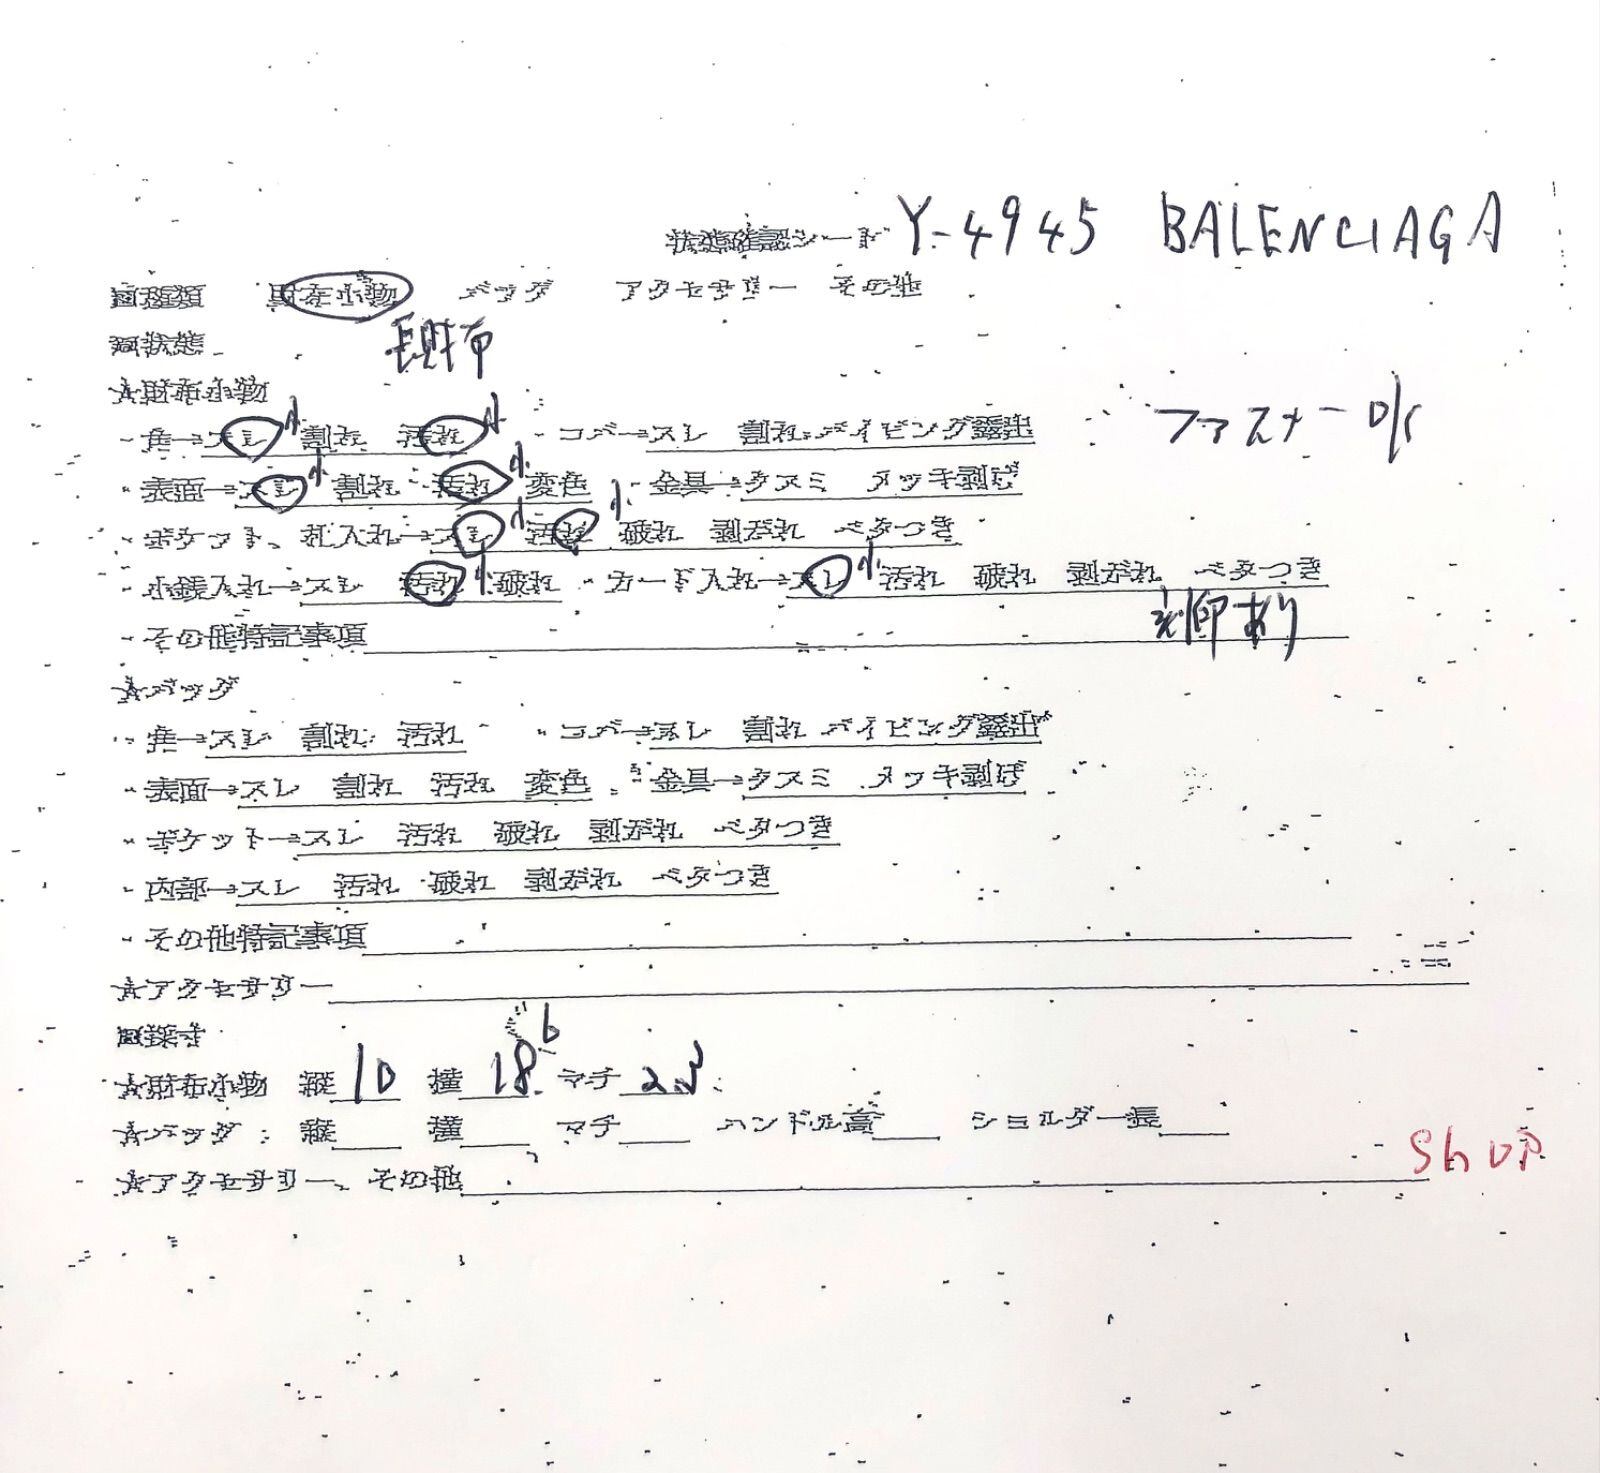 状態確認シート Y-4945 BALENCIAGA
■種類 財布小物 バッグ アクセサリー その他
■状態 長財布
★財布小物
・角→スレ 小 割れ 汚れ 小 ・コバ→スレ 割れ パイピング露出 ファスナー
・表面→スレ 小 割れ 汚れ 小 変色 ・金具→クスミ メッキ剥げ
・ポケット、札入れ→スレ 小 汚れ 小 破れ 剥がれ ベタつき
・小銭入れ→スレ 汚れ 小 破れ ・カード入れ→スレ 小 汚れ 破れ 剥がれ ベタつき
・その他特記事項 刻印あり
★バッグ
・角→スレ 割れ 汚れ ・コバ→スレ 割れ パイピング露出
・表面→スレ 割れ 汚れ 変色 ・金具→クスミ メッキ剥げ
・ポケット→スレ 汚れ 破れ 剥がれ ベタつき
・内部→スレ 汚れ 破れ 剥がれ ベタつき
・その他特記事項
★アクセサリー
■採寸
★財布小物 縦 10 横 18.6 マチ
★バッグ:縦 横 マチ ハンドル高 ショルダー長
★アクセサリー、その他 Shop